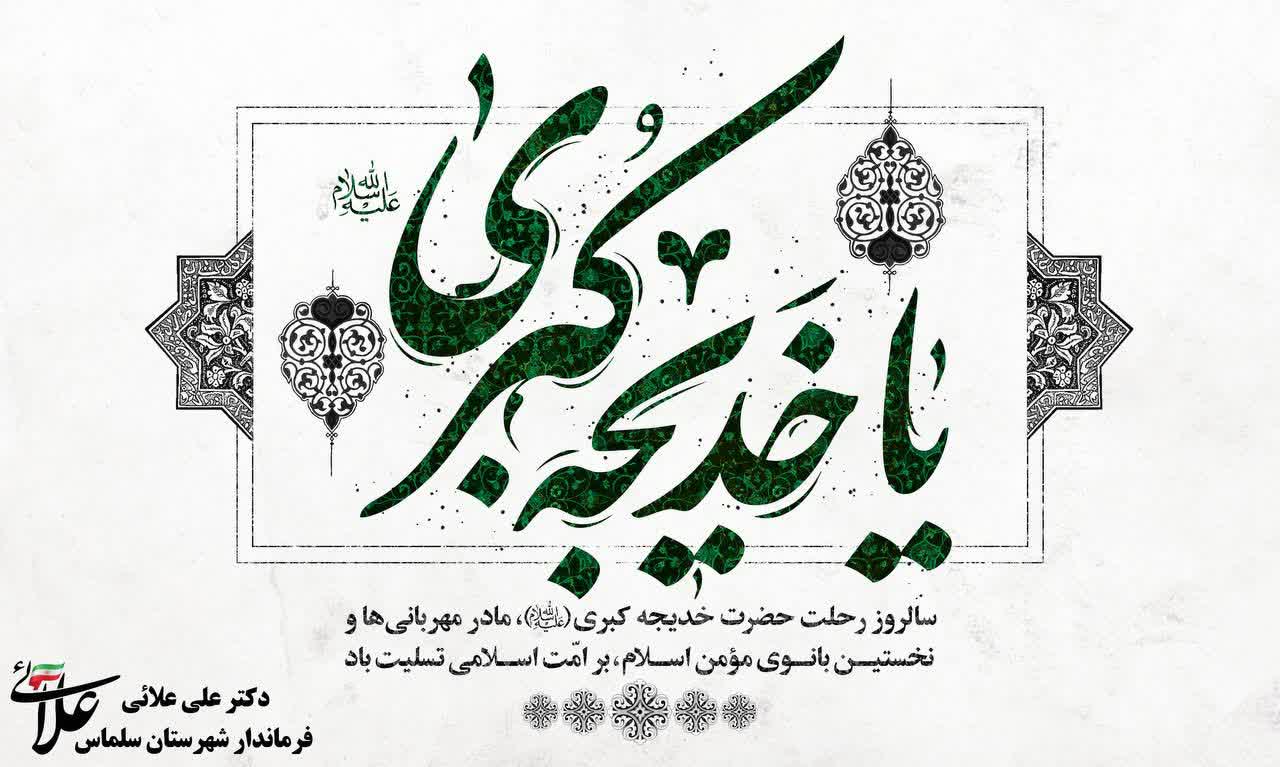 یا خدیجه کبری
علیه سلام الله
سالروز رحلت حضرت خدیجه کبری (علیه سلام الله)، مادر مهربانی‌ها و
نخستین بانوی مؤمن اسلام، بر امّت اسلامی تسلیت باد
علائی
دکتر علی علائی
فرماندار شهرستان سلماس